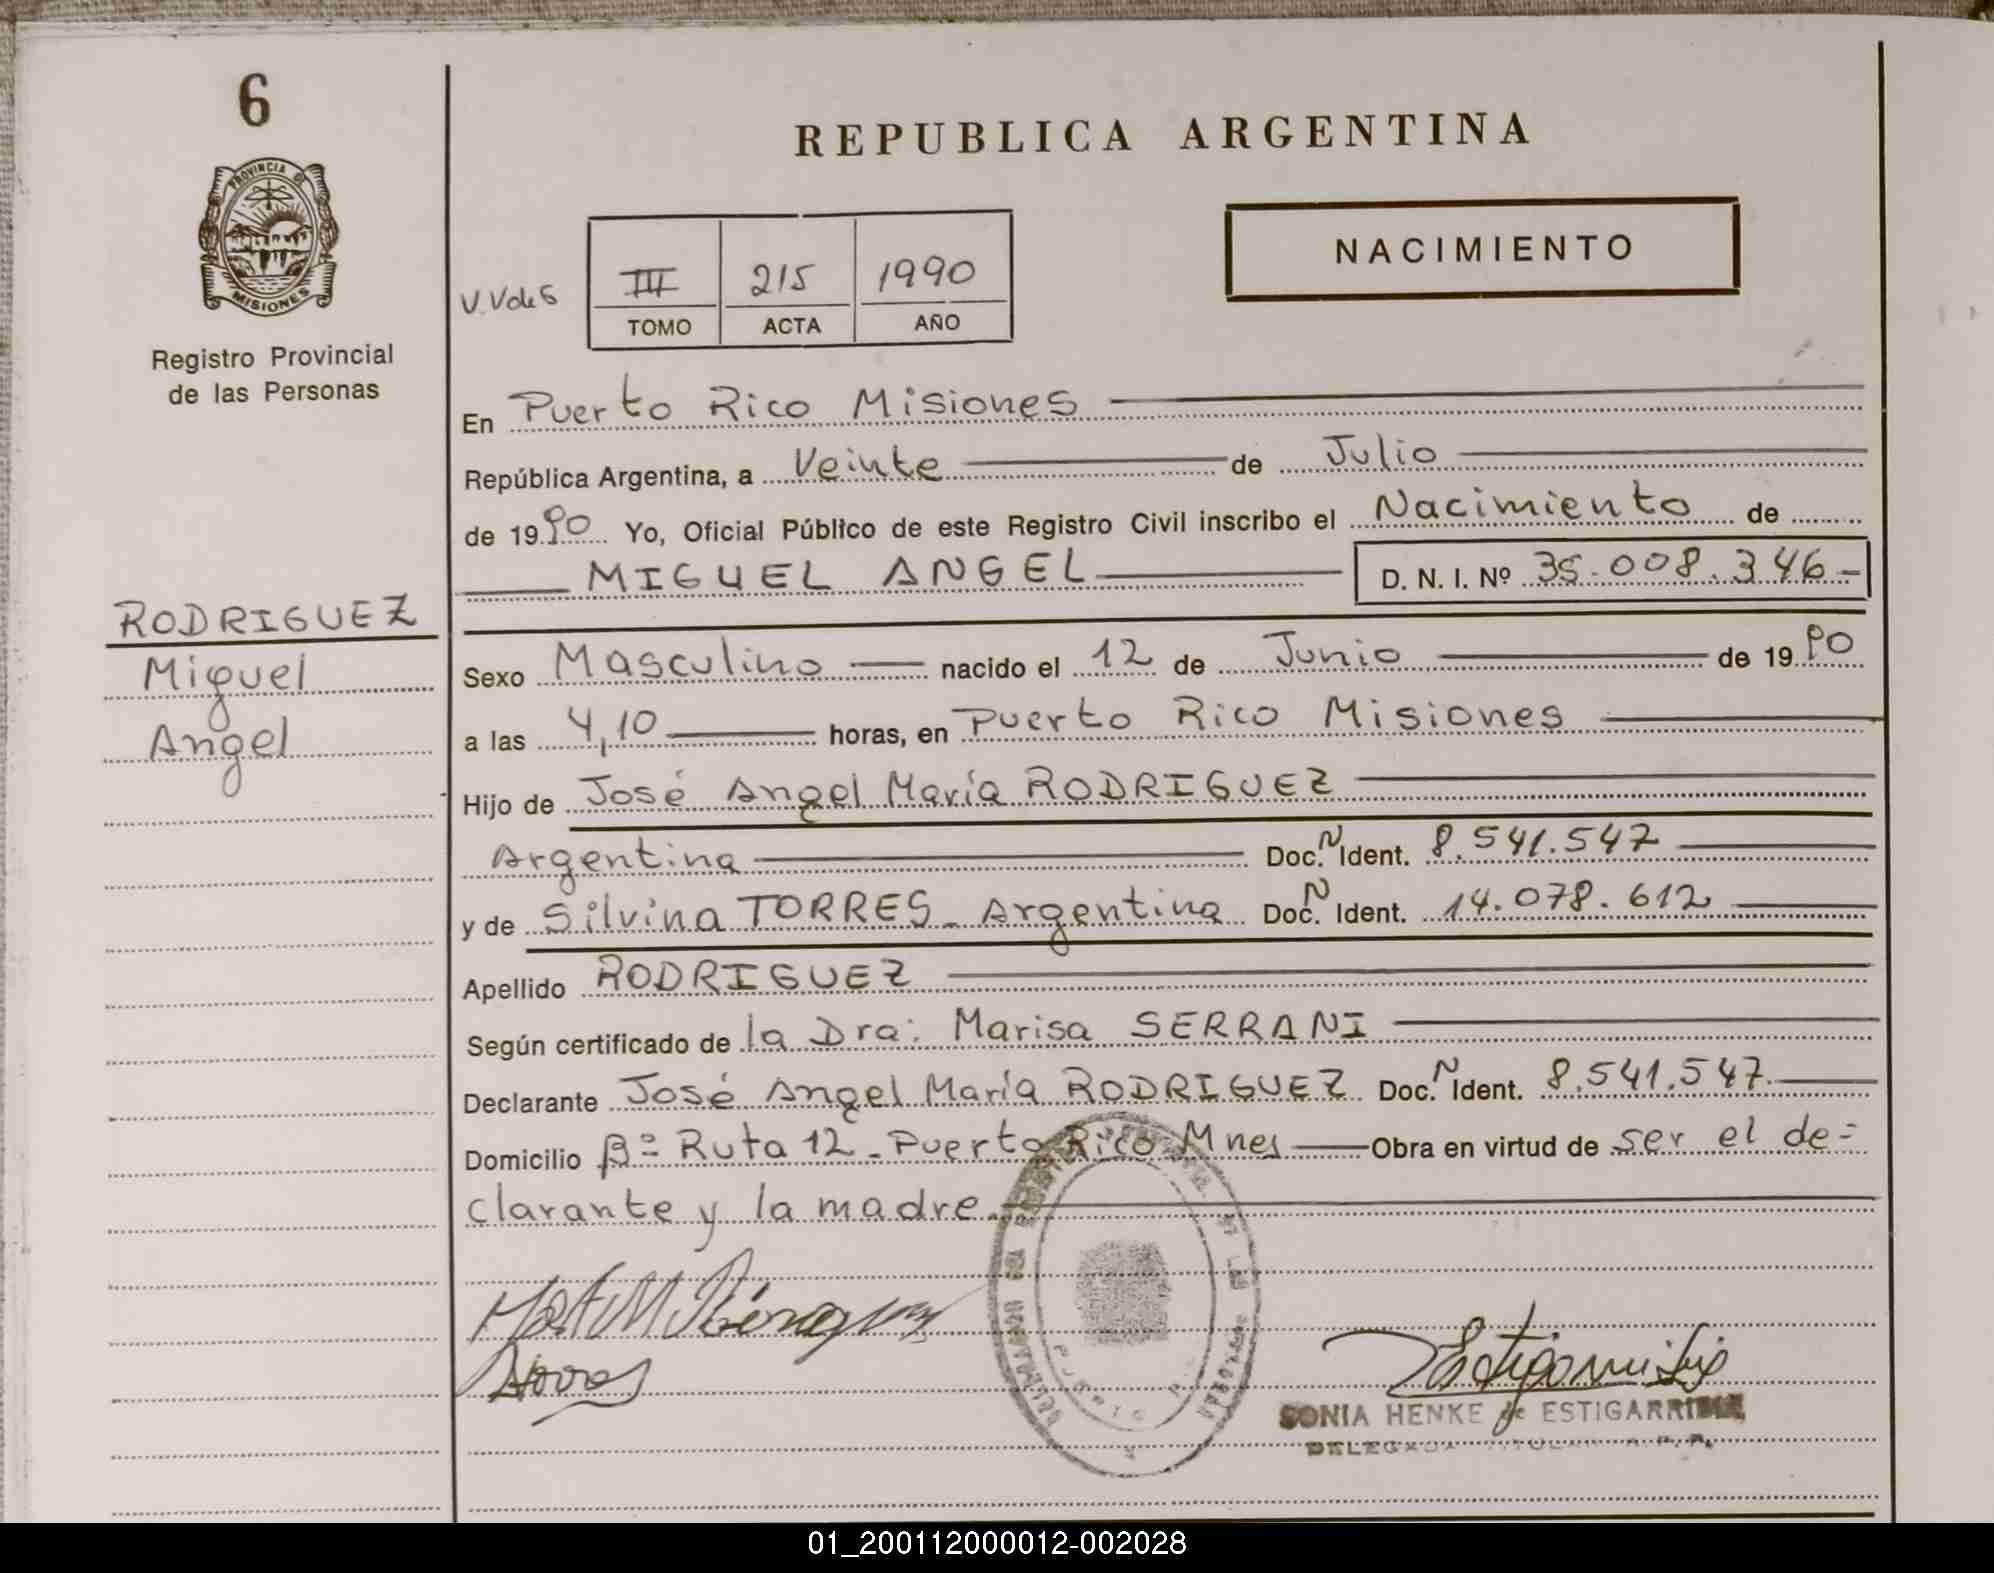 6
PROVINCIA DE
MISIONES
Registro Provincial
de las Personas
REPUBLICA ARGENTINA
NACIMIENTO
V.Vde6
III 215 1990
TOMO ACTA AÑO
En Puerto Rico Misiones
República Argentina, a Veinte de Julio
de 1990 Yo, Oficial Público de este Registro Civil inscribo el Nacimiento de
MIGUEL ANGEL D. N. I. Nº 35.008.346-
RODRIGUEZ
Miguel
Angel
Sexo Masculino nacido el 12 de Junio de 1990
a las 4,10 horas, en Puerto Rico Misiones
Hijo de José Angel María RODRIGUEZ
Argentina Doc. N Ident. 8.541.547
y de Silvina TORRES - Argentina Doc. N Ident. 14.078.612
Apellido RODRIGUEZ
Según certificado de la Dra: Marisa SERRANI
Declarante José Angel María RODRIGUEZ Doc. N Ident. 8.541.547.
Domicilio Bº Ruta 12 - Puerto Rico Mnes Obra en virtud de ser el de=
clarante y la madre.
SONIA HENKE de ESTIGARRIBIA
01_200112000012-002028